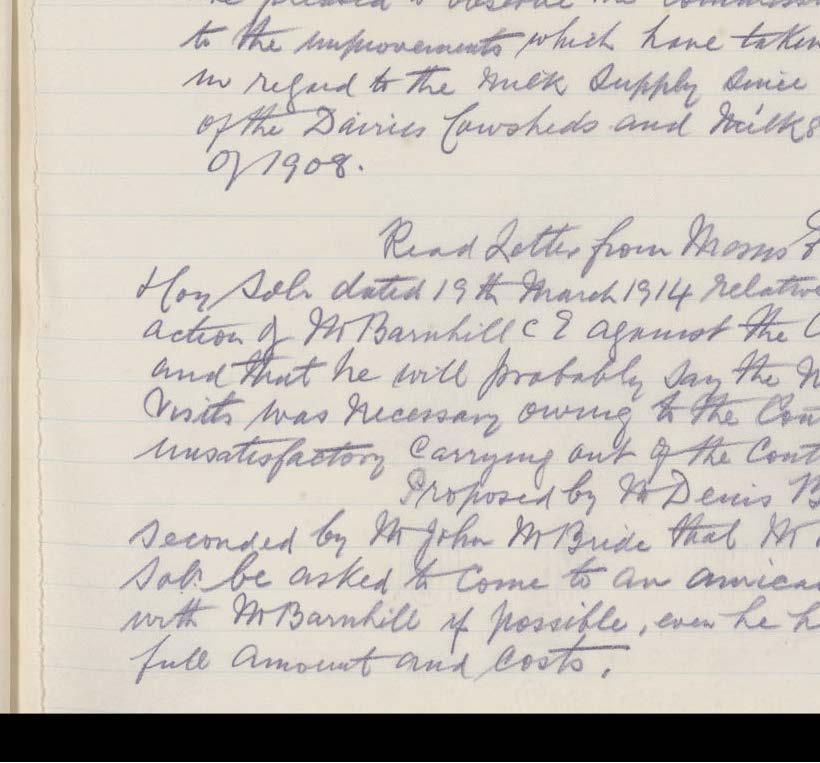 be pleased to observe the
to the improvements which have taken
in regard to the Milk Supply since
of the Dairies Cowsheds and Milks
of 1908.
Read Letter from Messrs
Hoy Solr dated 19th March 1914 relative
action of Mr Barnhill C E against the
and that he will probably say the
Visits was necessary owing to the Con
unsatisfactory carrying out of the Cont
Proposed by Mr Denis B
seconded by Mr John McBride that Mr
Solr. be asked to come to an amica
with Mr Barnhill if possible, even he h
full amount and costs.